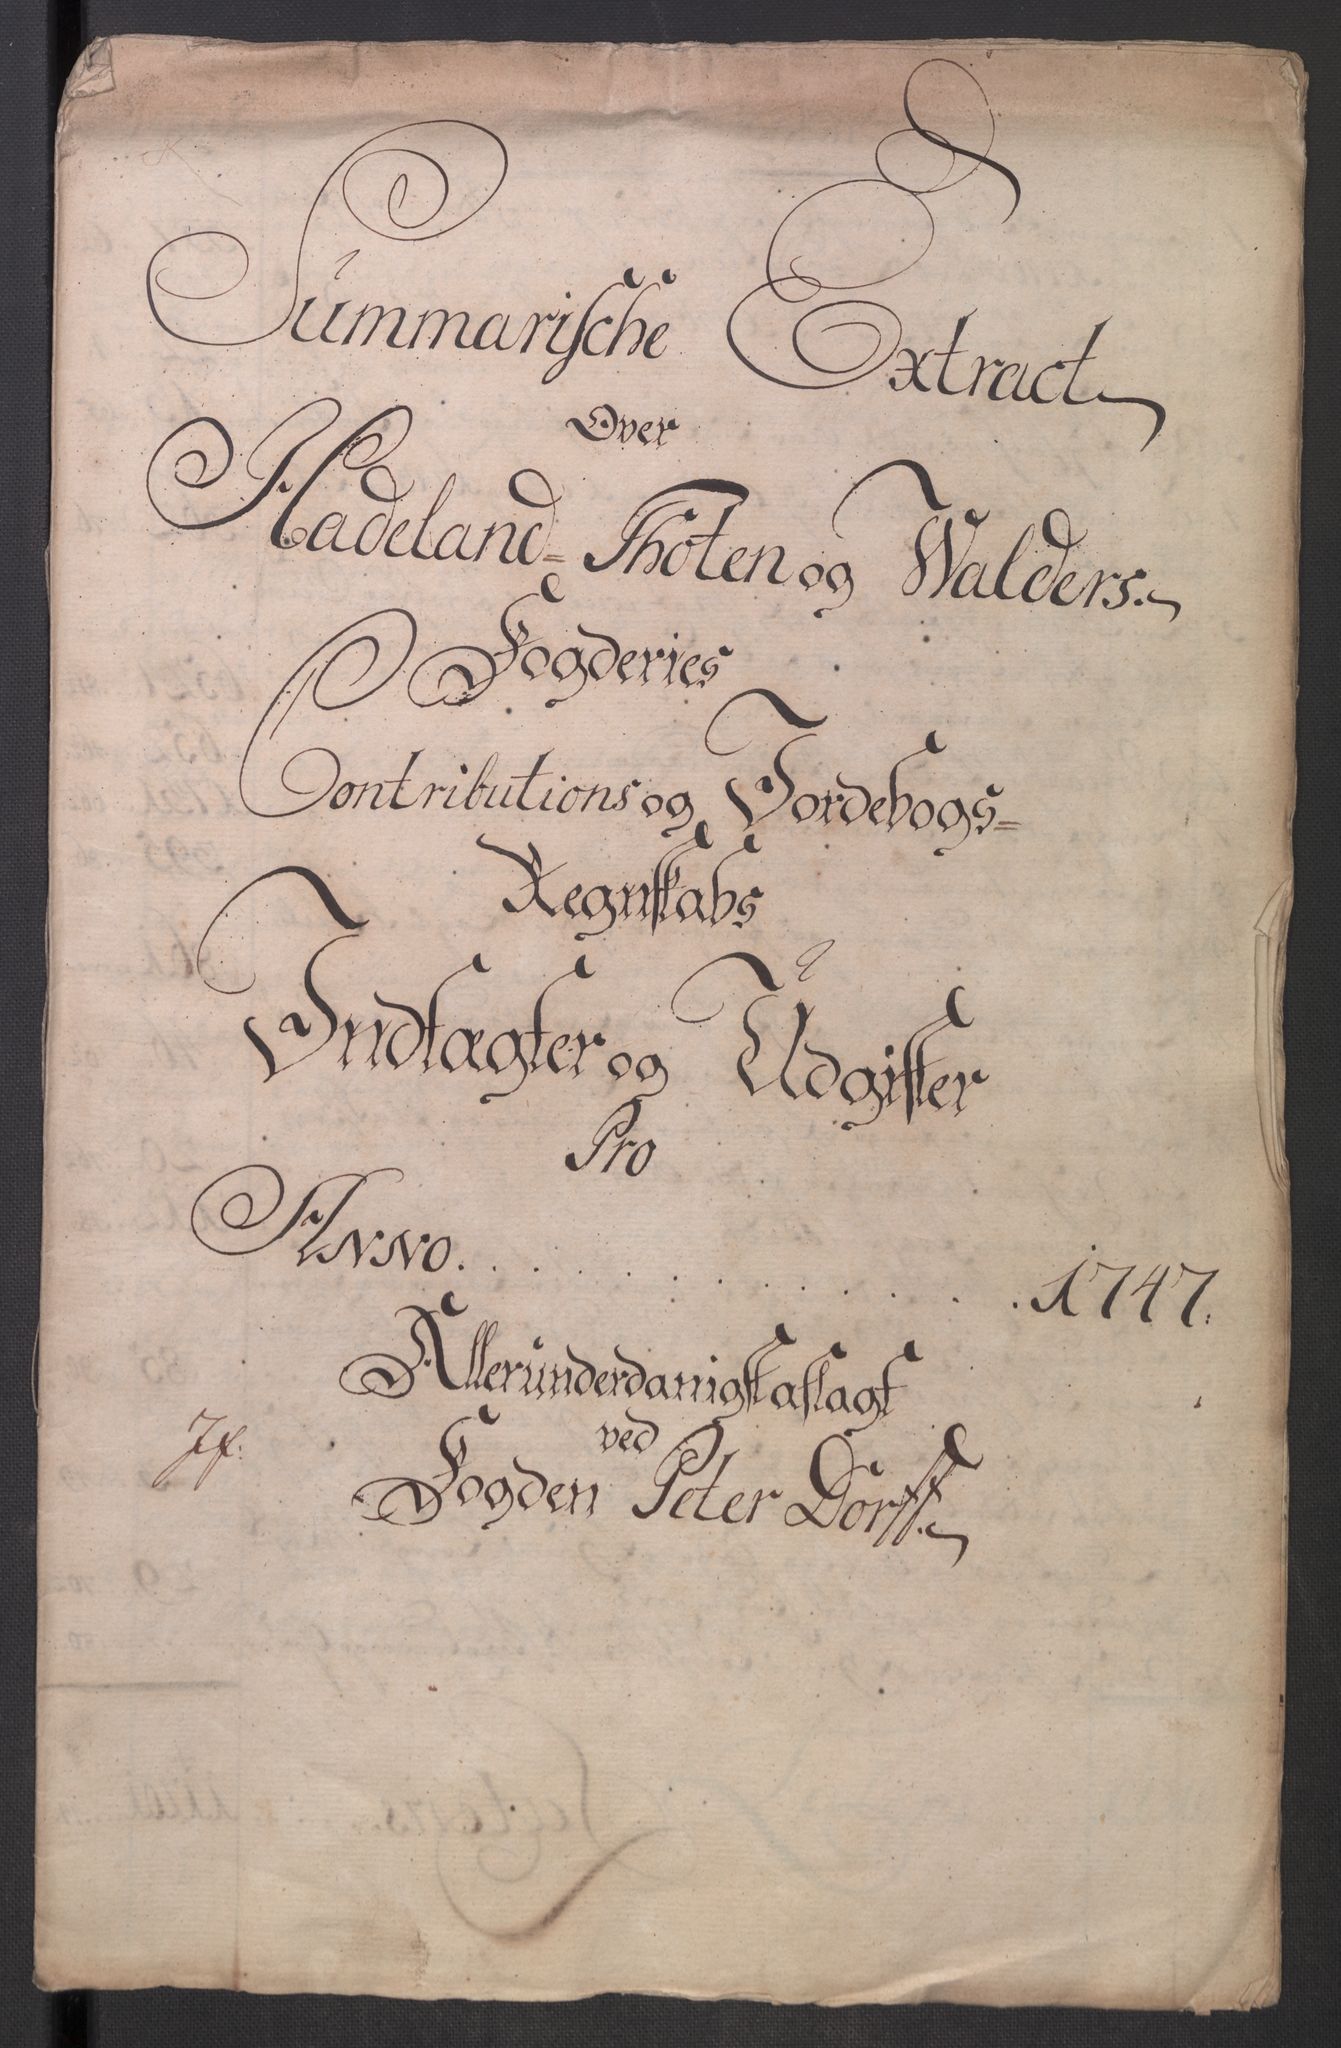 Summarische Extract
Over
Hadeland= Thoten og Walders.
Fogderies
Contributions og Jordebogs=
Regnskabs
Indtægter og Udgifter
Pro
Anno. . . . . . . . . . . . . . 1747.
Allerunderdanigst aflagt
ved
Fogden Peter Dorff.